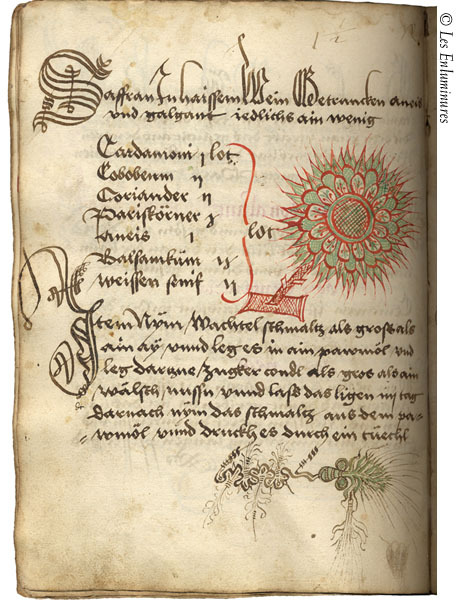 Saffran In haissem Wein Getruncken aneis
vnd galgant iedlichs ain wenig
Cardamoni j lot
Cobobeum ij
Coriander ij
Pariskörner j
aneis j lot
Balsamkum ij
weissen senif ij
Item Nym Wachtel schmaltz als gross als
ain ay vnnd leg es in ain pawmöl vnd
leg darzue zugker condl als gros als ain
wälsch nussn vnnd lass das ligen iiij tag
darnach nÿm das schmaltz aus dem pa-
wmöl vnnd druckh es durch ein tüechl
© Les Enluminures